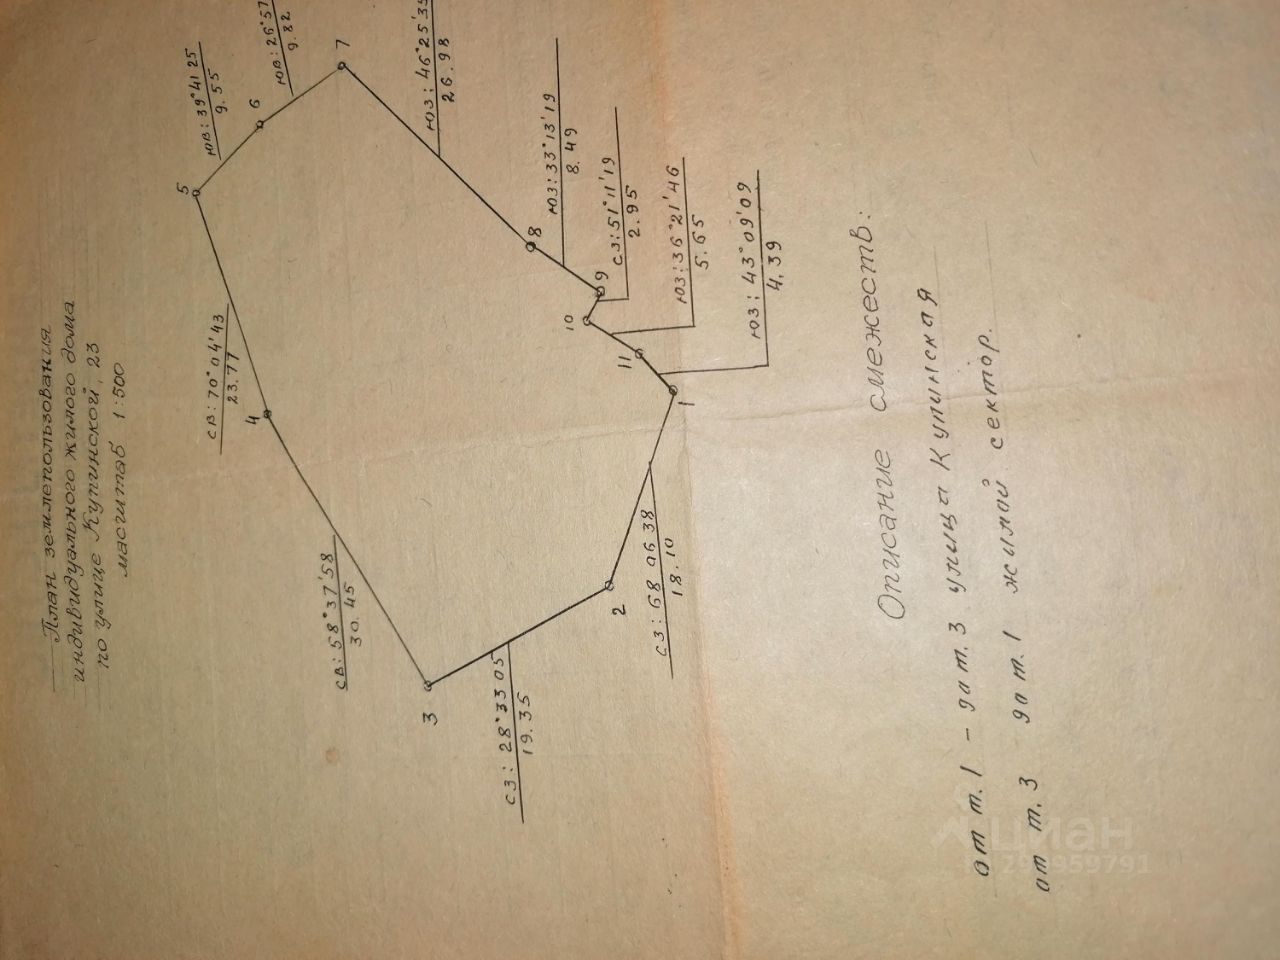 План землепользования
индивидуального жилого дома
по улице Купинской, 23
масштаб 1:500
5
ЮВ: 39°41 25
9.55
6
9.82
7
26.98
СВ: 70°04'43
23.77
4
8
ЮЗ: 33°13'19
8.49
9
СЗ: 51°11'19
2.95
10
ЮЗ: 36°21'46
5.65
11
ЮЗ: 43°09'09
4.39
1
СВ: 58°37'58
30.45
3
СЗ: 28°33 05
19.35
2
СЗ: 68 06 38
18.10
Описание смежеств:
от т.1 - до т.3 улица Купинская
от т.3 до т.1 жилой сектор.
циан